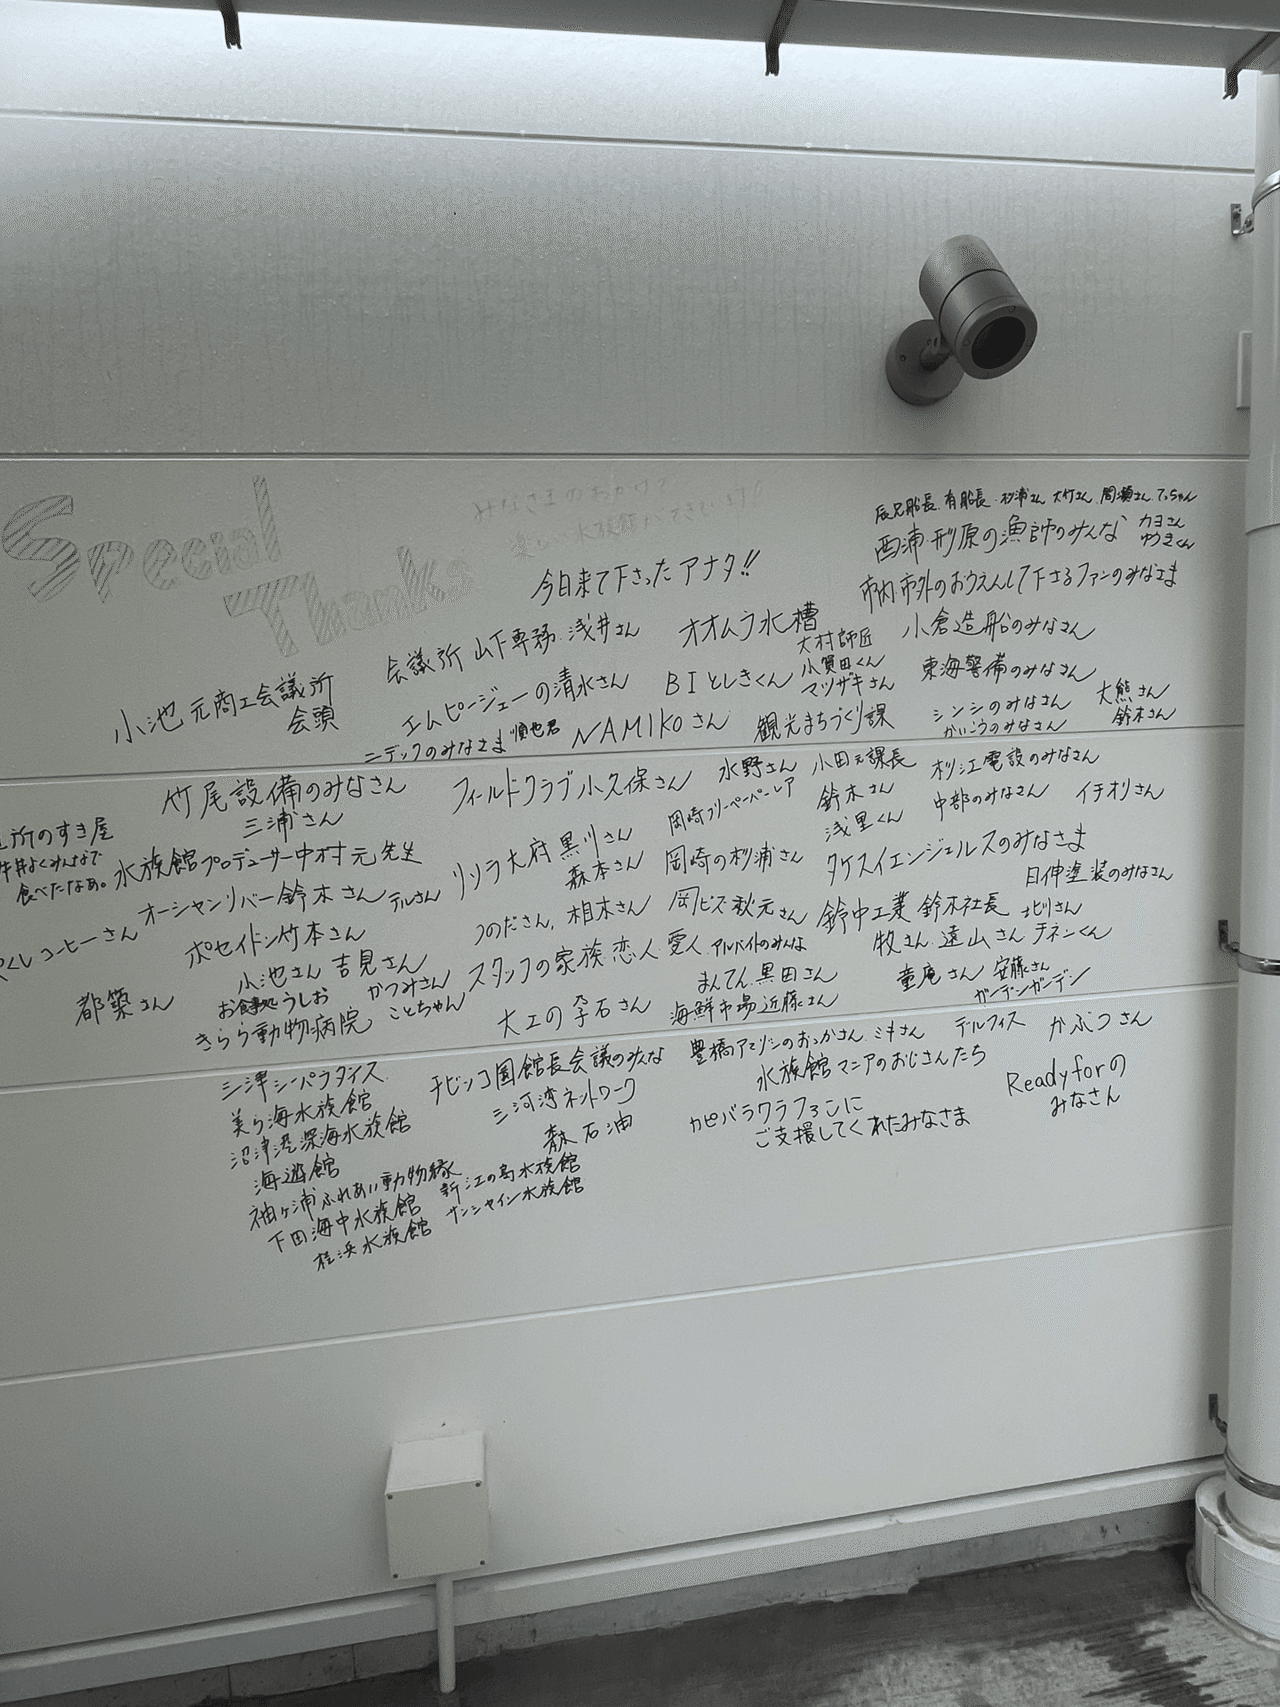 Special
Thanks
みなさまのおかげで
楽しい水族館ができています!
今日来て下さったアナタ!!
辰兄船長、有船長、杉浦さん、大竹さん、間瀬さん、てっちゃん
西浦・形原の漁師のみんな
カヨさん
ゆうきくん
市内市外のおうえんして下さるファンのみなさま
会議所 山下専務・浅井さん
オオムラ水槽
大村師匠
小賀田くん
マツザキさん
小倉造船のみなさん
小池元商工会議所
会頭
エムピージェーの清水さん
BIとしきくん
東海警備のみなさん
ニデックのみなさま
順也君
NAMIKOさん
観光まちづくり課
シンシのみなさん
かいこうのみなさん
大熊さん
鈴木さん
竹尾設備のみなさん
三浦さん
フィールドクラブ小久保さん
水野さん
小田元課長
鈴木さん
浅里くん
杉江電設のみなさん
中部のみなさん
イチオリさん
所のすき屋
牛丼よくみんなで
食べたなぁ。
水族館プロデューサー中村元先生
リソラ大府 黒川さん
森本さん
岡崎フリーペーパーレア
岡崎の杉浦さん
タケスイエンジェルスのみなさま
日伸塗装のみなさん
コーヒーさん
オーシャンリバー鈴木さん
テルさん
つのださん、相木さん
岡ビズ秋元さん
鈴中工業 鈴木社長
ポセイドン竹本さん
小池さん 吉見さん
かつみさん
ことちゃん
スタッフの家族 恋人 愛人
アルバイトのみんな
牧さん 遠山さん チネンくん
都築さん
お食事処うしお
きらら動物病院
大工の孕石さん
まんてん 黒田さん
海鮮市場 近藤さん
童庵さん
安藤さん
ガーデンガーデン
三津シーパラダイス
美ら海水族館
沼津港深海水族館
海遊館
袖ヶ浦ふれあい動物縁
下田海中水族館
桂浜水族館
チビッコ園館長会議のみんな
三河湾ネットワーク
森石油
新江の島水族館
サンシャイン水族館
豊橋アマゾンのおっかさん ミキさん
デルフィス
かぶつさん
水族館マニアのおじさんたち
カピバラクラファンに
ご支援してくれたみなさま
Readyforの
みなさん